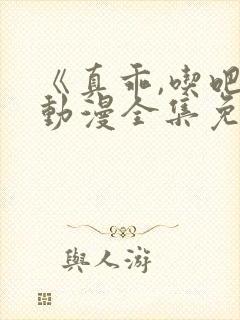 《真乖,喫吧
動漫全集免
與人游